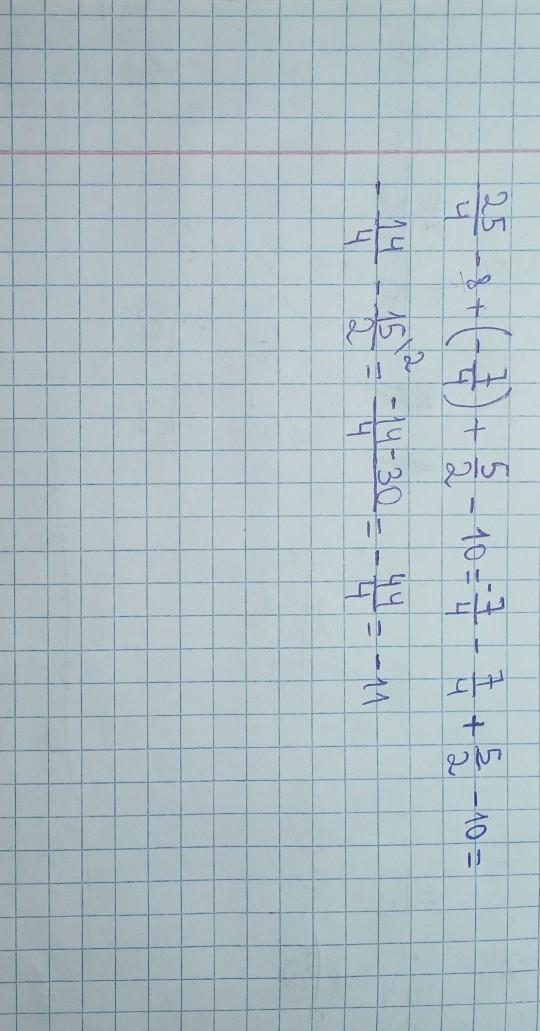 25/4 - 8 + (-7/4) + 5/2 - 10 = -7/4 - 7/4 + 5/2 - 10 =
- 14/4 - 15/2 \2 = -14-30/4 = - 44/4 = -11